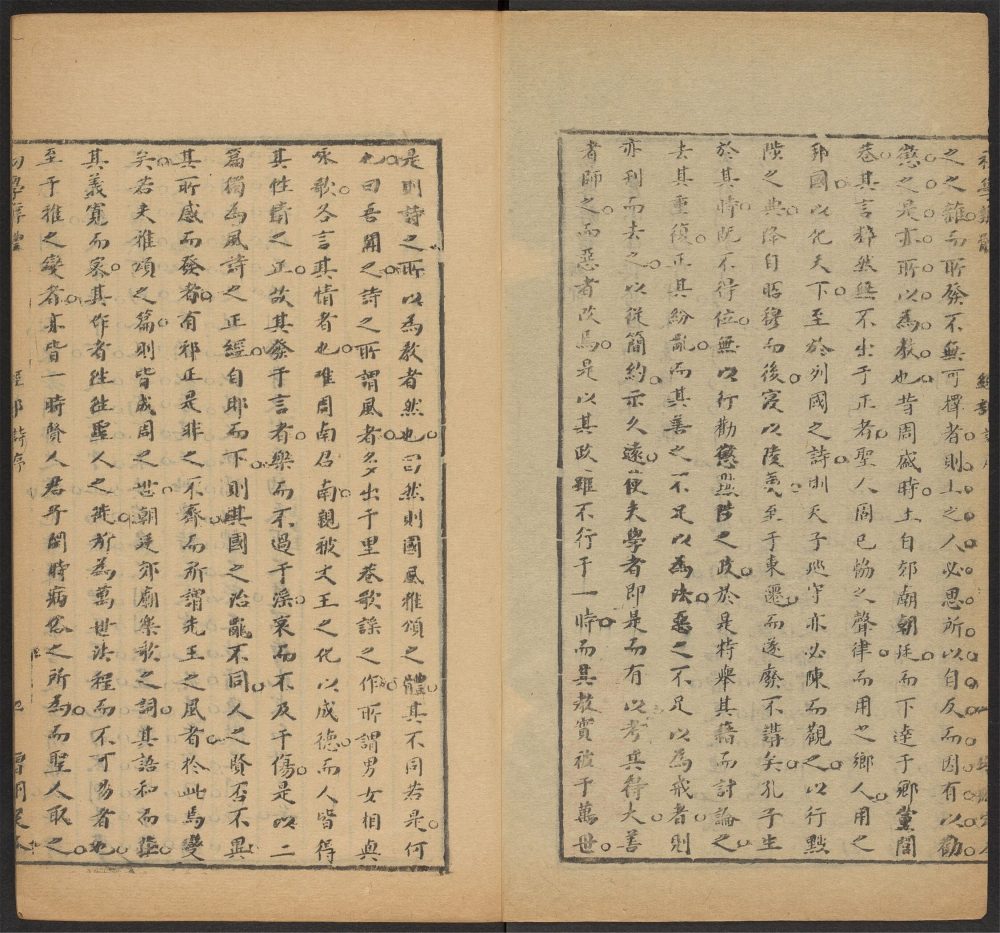 之之雜而所發不無可擇者則上之人必思所以自反而因有以勸
懲之是亦所以為教也昔周盛時上自郊廟朝廷而下達于鄉黨閭
巷其言粹然無不出于正者聖人固已協之聲律而用之鄉人用之
邦國以化天下至於列國之詩則天子巡守亦必陳而觀之以行黜
陟之典降自昭穆而後寖以陵夷至于東遷而遂廢不講矣孔子生
於其時既不得位無以行勸懲黜陟之政於是特舉其籍而討論之
去其重復正其紛亂而其善之不足以為法惡之不足以為戒者則
亦刊而去之以從簡約示久遠使夫學者即是而有以考其得失善
者師之而惡者改焉是以其政雖不行于一時而其教實被于萬世
是則詩之所以為教者然也曰然則國風雅頌之體其不同若是何
也曰吾聞之詩之所謂風者多出于里巷歌謠之作所謂男女相與
永歌各言其情者也唯周南召南親被文王之化以成德而人皆得
其性情之正故其發于言者樂而不過于淫哀而不及于傷是以二
篇獨為風詩之正經自邶而下則其國之治亂不同人之賢否不異
其所感而發者有邪正是非之不齊而所謂先王之風者於此焉變
矣若夫雅頌之篇則皆成周之世朝廷郊廟樂歌之詞其語和而莊
其義寬而密其作者往往聖人之徒所為萬世法程而不可易者也
至于雅之變者亦皆一時賢人君子閔時病俗之所為而聖人取之
經部詩序